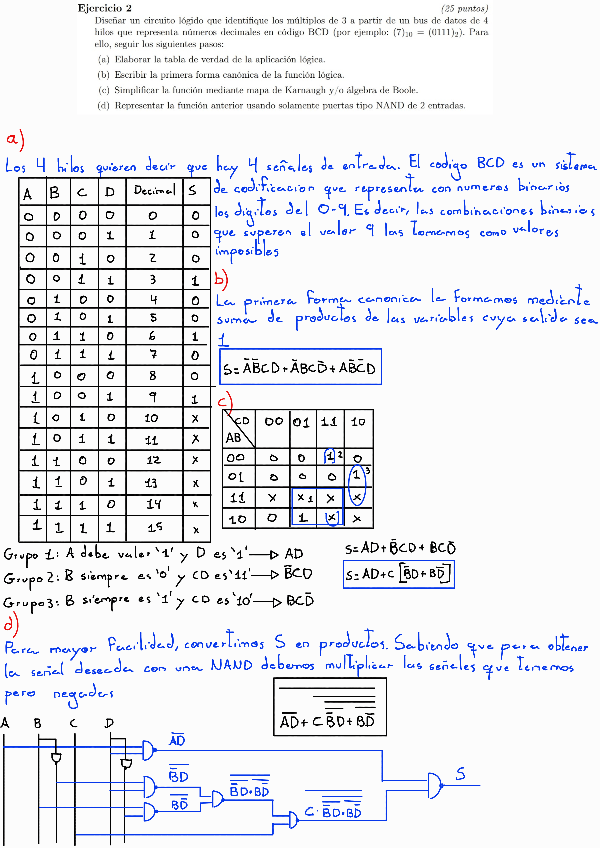 Ejercicio 2 (25 puntos)
Diseñar un circuito lógido que identifique los múltiplos de 3 a partir de un bus de datos de 4
hilos que representa números decimales en código BCD (por ejemplo: (7)₁₀ = (0111)₂). Para
ello, seguir los siguientes pasos:
(a) Elaborar la tabla de verdad de la aplicación lógica.
(b) Escribir la primera forma canónica de la función lógica.
(c) Simplificar la función mediante mapa de Karnaugh y/o álgebra de Boole.
(d) Representar la función anterior usando solamente puertas tipo NAND de 2 entradas.
a)
Los 4 hilos quieren decir que hay 4 señales de entrada. El codigo BCD es un sistema
de codificacion que representa con numeros binarios
los digitos del 0-9. Es decir, las combinaciones binarias
que superen el valor 9 las tomamos como valores
imposibles
A B C D Decimal S
0 0 0 0 0 0
0 0 0 1 1 0
0 0 1 0 2 0
0 0 1 1 3 1
0 1 0 0 4 0
0 1 0 1 5 0
0 1 1 0 6 1
0 1 1 1 7 0
1 0 0 0 8 0
1 0 0 1 9 1
1 0 1 0 10 x
1 0 1 1 11 x
1 1 0 0 12 x
1 1 0 1 13 x
1 1 1 0 14 x
1 1 1 1 15 x
b)
La primera forma canonica la formamos mediante
suma de productos de las variables cuya salida sea
1
S = A̅B̅CD + A̅BCD̅ + AB̅C̅D
c)
CD 00 01 11 10
AB
00 0 0 1 2 0
01 0 0 0 1 3
11 x x 1 x x
10 0 1 x x
Grupo 1: A debe valer '1' y D es '1' → AD
Grupo 2: B siempre es '0' y CD es '11' → B̅CD
Grupo 3: B siempre es '1' y CD es '10' → BCD̅
S = AD + B̅CD + BCD̅
S = AD + C [B̅D + BD̅]
d)
Para mayor facilidad, convertimos S en productos. Sabiendo que para obtener
la señal deseada con una NAND debemos multiplicar las señales que tenemos
pero negadas
A̅D̅ + C B̅D + BD̅
A B C D
A̅D̅
B̅D
BD̅
B̅D · BD̅
C · B̅D · BD̅
S